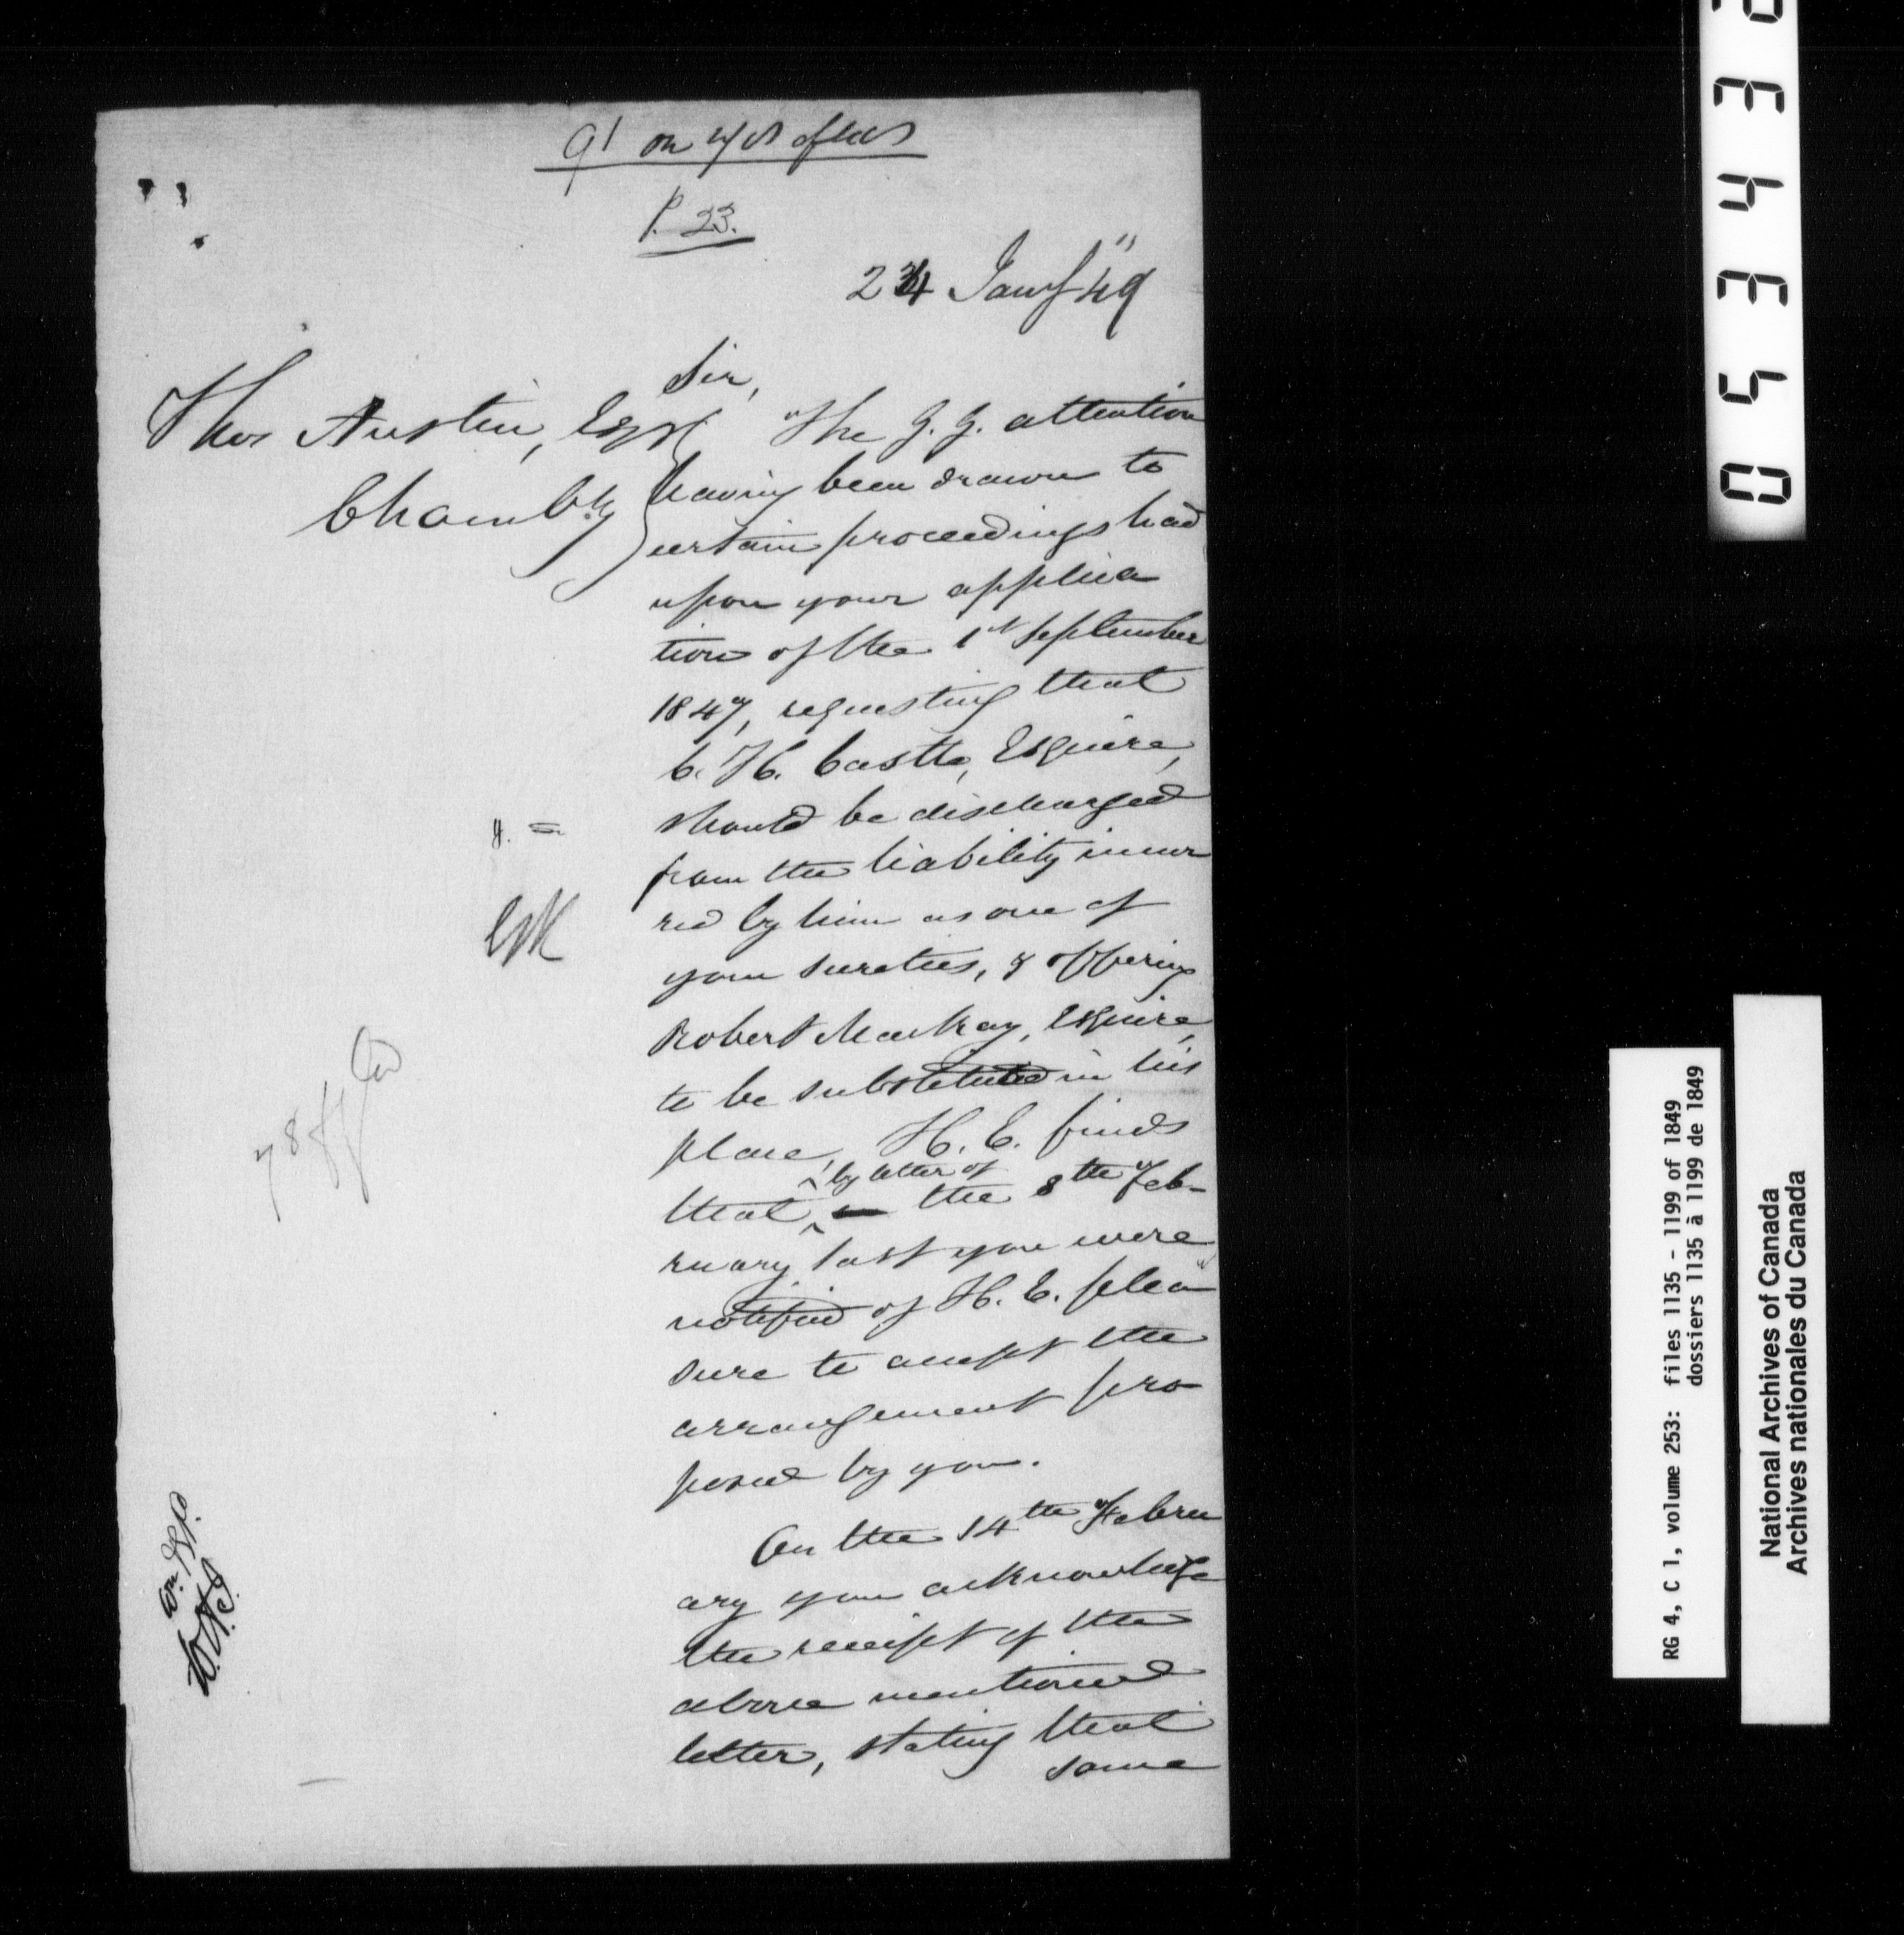 91 on
P. 23.
24 Jany "49
Sir,
Thos Austin, Esqr
Chambly
The G. G. attention
having been drawn to
certain proceedings had
upon your applica
tion of the 1st September
1847, requesting that
C. H. Castle, Esquire,
should be discharged
from the liability incur
red by him as one of
your sureties, & offering
Robert Mackay, Esquire,
to be substituted in his
place, H. E. finds
by letter of
that, the 8th Feb-
ruary last you were
notified of H. E. plea"
sure to accept the
arrangement pro
posed by you.
On the 14th Febru
ary you acknowledge
the receipt of the
above mentioned
letter, stating that
some
05343
RG 4, C 1, volume 253: files 1135 - 1199 of 1849
dossiers 1135 à 1199 de 1849
National Archives of Canada
Archives nationales du Canada